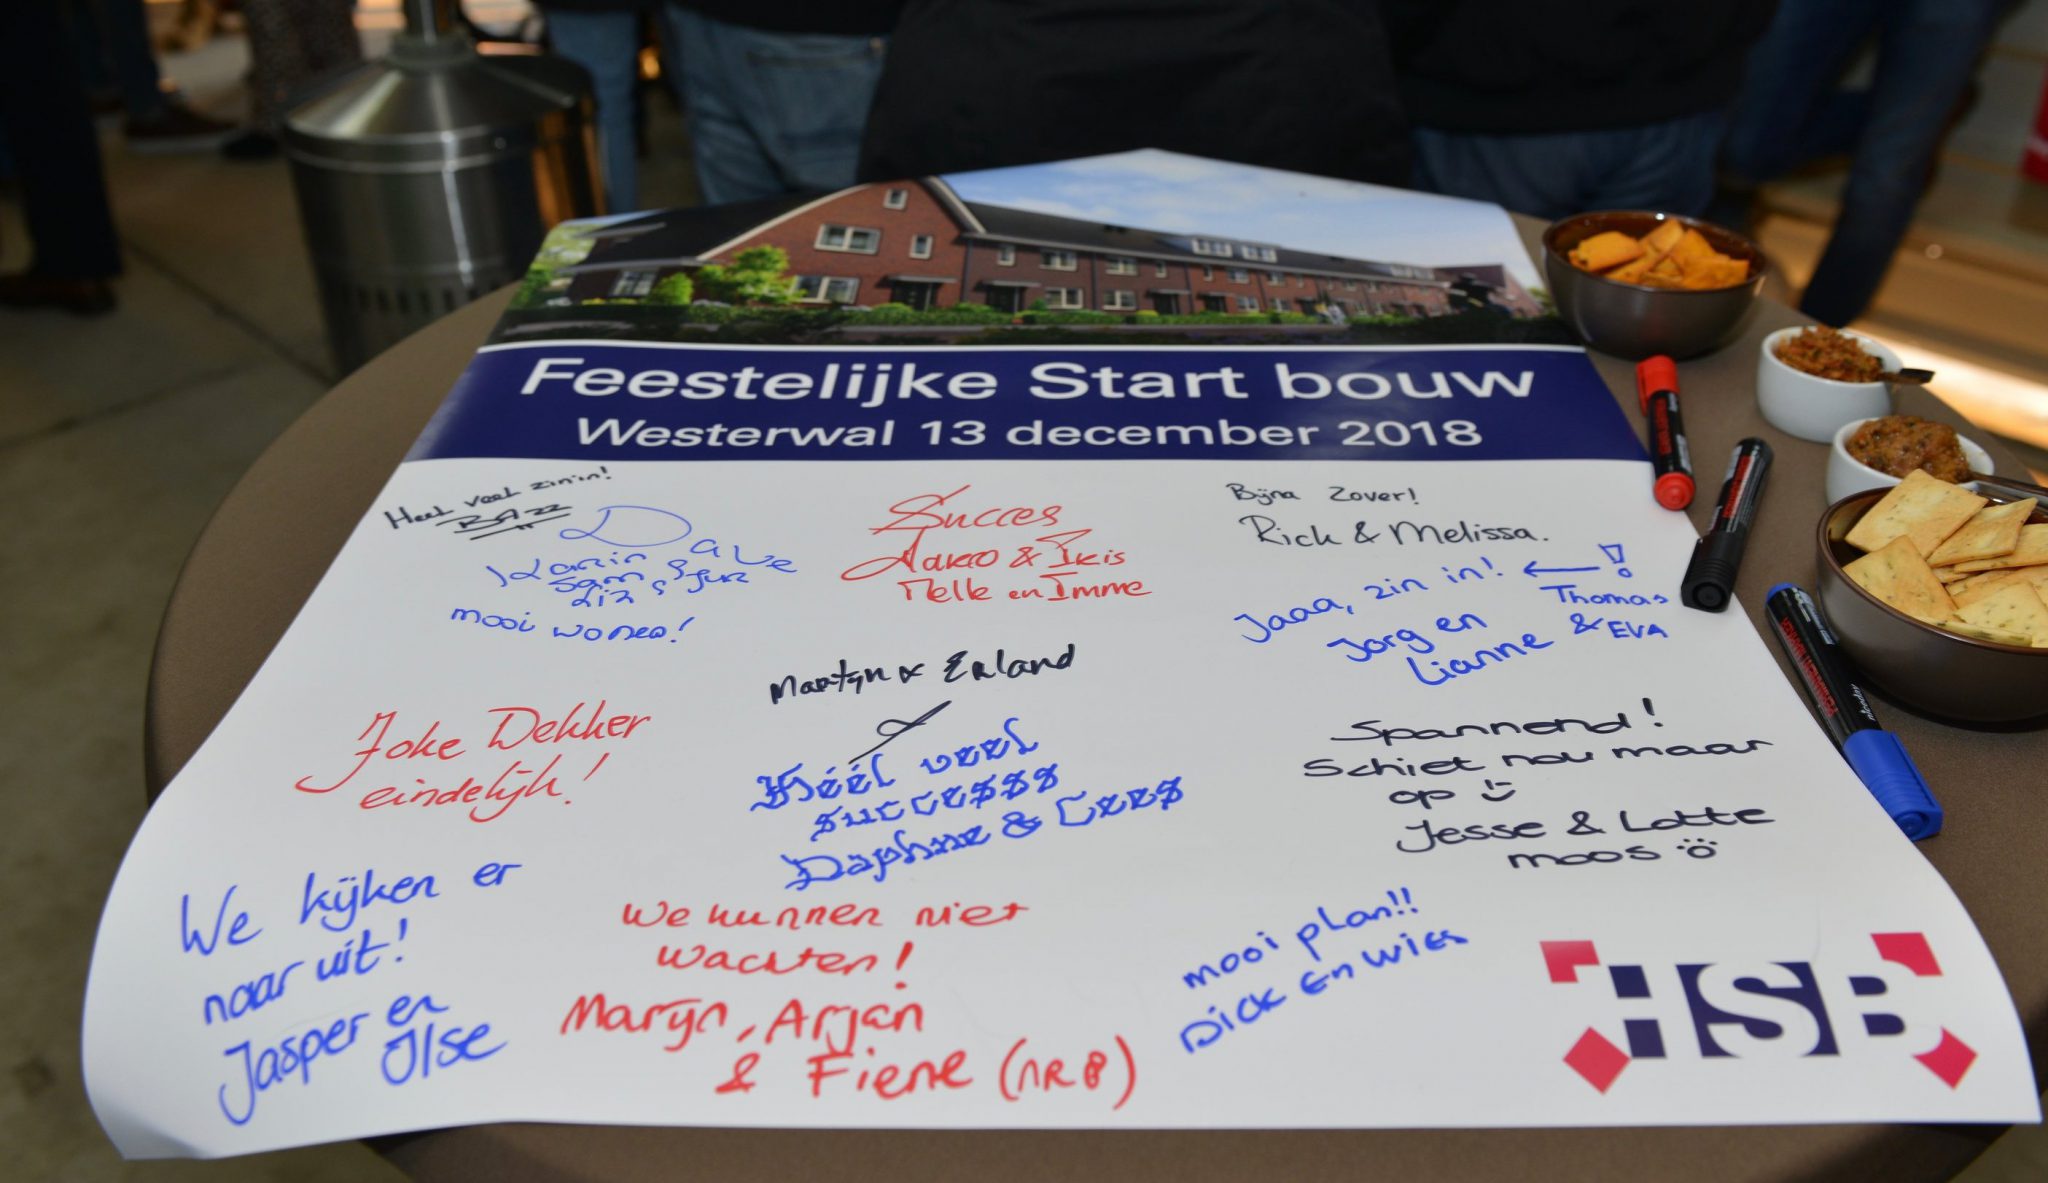 Feestelijke Start bouw
Westerwal 13 december 2018
Heel veel zin in!
Bijna Zover!
Rick & Melissa.
Succes
& Iris
Melle en Imme
Karin Dave
Sam
Liz
mooi wonen!
Jaaa, zin in! ← !
Thomas
& EVA
Jorg en
Lianne
Martijn & Erland
Joke Dekker
eindelijk!
&
Héél veel
successs
Daphne & Cees
Spannend!
Schiet nou maar
op
Jesse & Lotte
moos
We kijken er
naar uit!
Jasper en
Ilse
We kunnen niet
wachten!
Marijn, Arjan
& Fiene (NR 8)
mooi plan!!
Dick En Wies
HSB